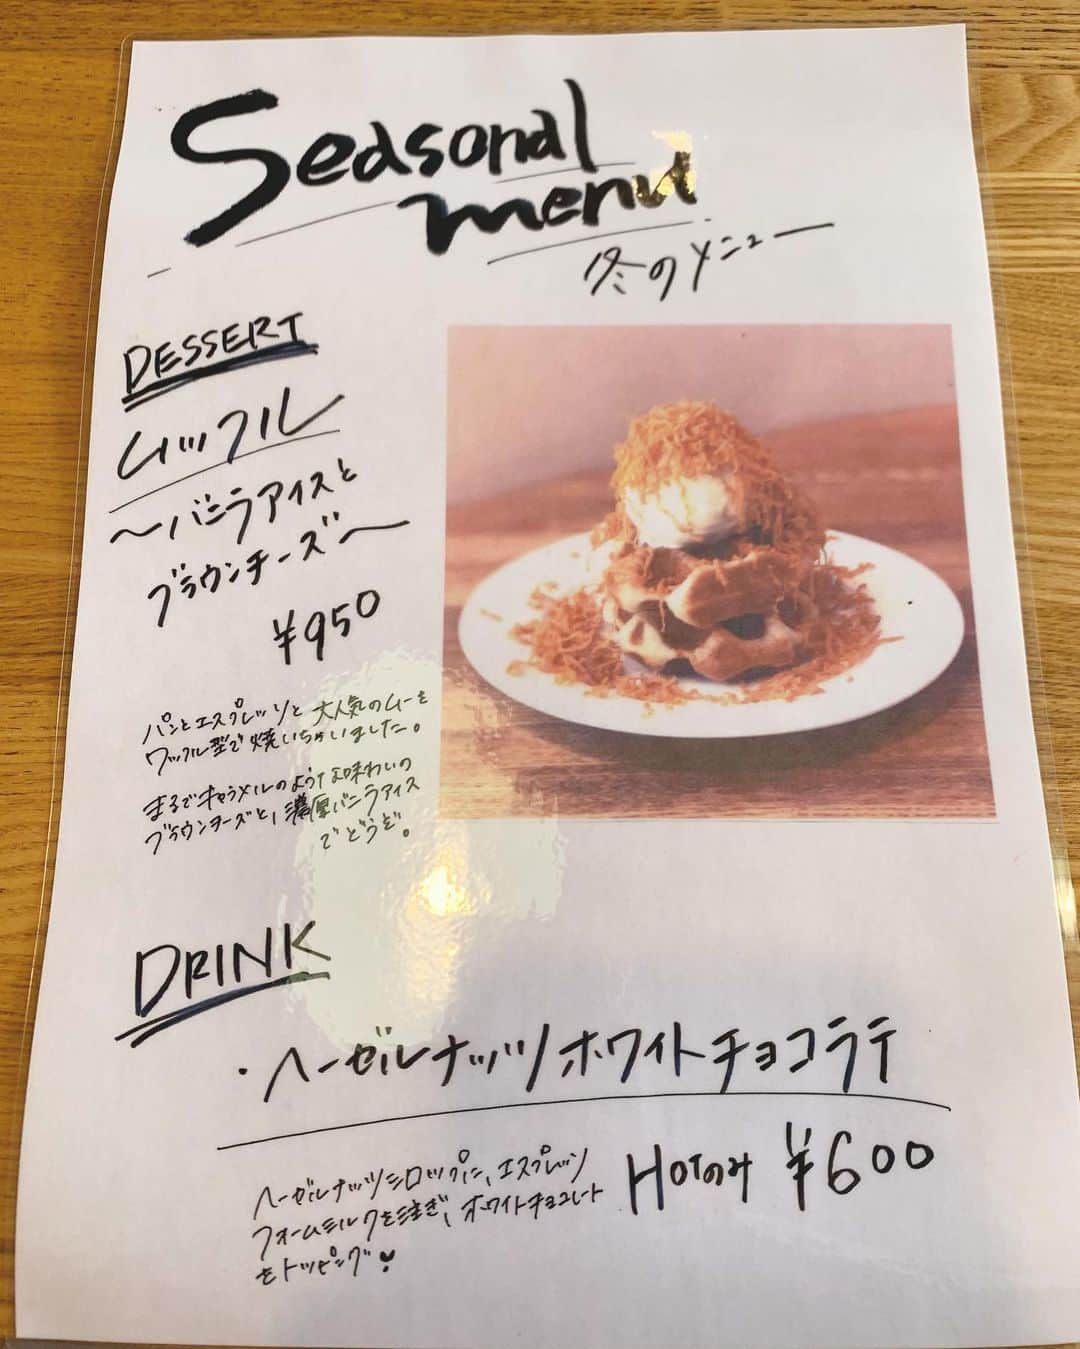 Seasonal
menu
冬のメニュー
DESSERT
ムッフル
〜バニラアイスと
ブラウンチーズ〜
¥950
パンとエスプレッソと大人気のムーを
ワッフル型で焼いちゃいました。
まるでキャラメルのような味わいの
ブラウンチーズと、濃厚バニラアイス
でどうぞ。
DRINK
・ヘーゼルナッツホワイトチョコラテ
HOTのみ ¥600
ヘーゼルナッツシロップに、エスプレッソ
フォームミルクを注ぎ、ホワイトチョコレート
をトッピング♥